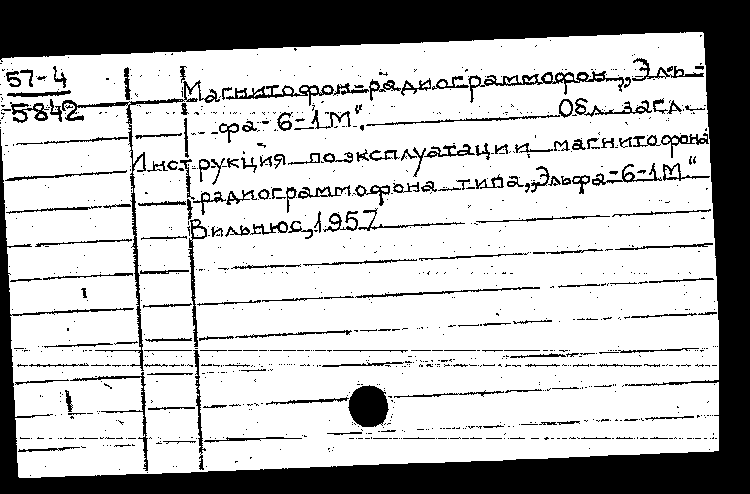 57-4
5842
Магнитофон-радиограммофон „Эль-
фа-6-1М“. Обл. загл.
Инструкция по эксплуатации магнитофона
радиограммофона типа „Эльфа-6-1М“
Вильнюс, 1957.